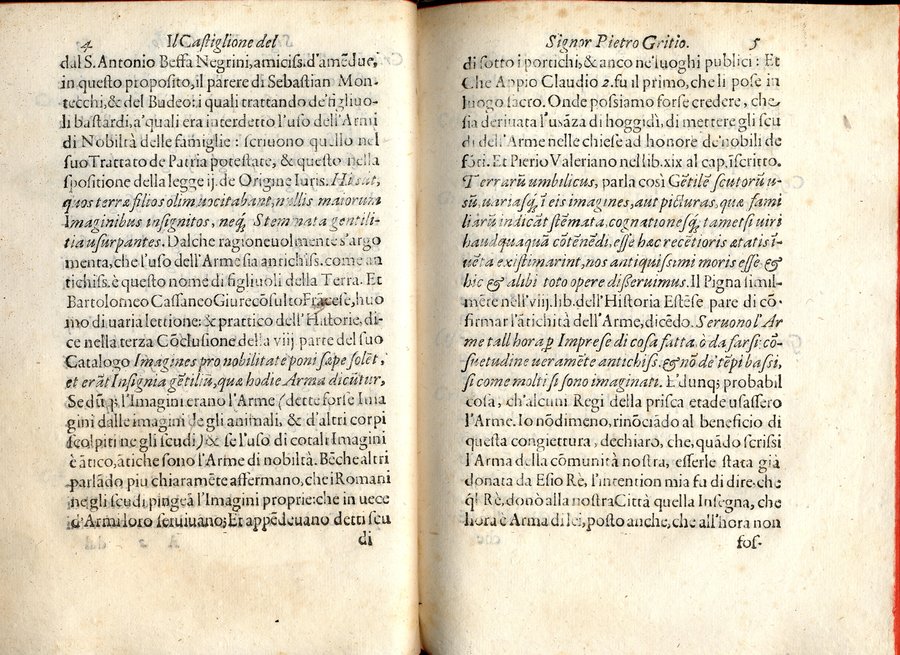 4 Il Castiglione del
dal S. Antonio Beffa Negrini, amiciss. d'amẽdue,
in questo proposito, il parere di Sebastian Mon-
tecchi, & del Budeo: i quali trattando de'figliuo-
li bastardi, a'quali era interdetto l'uso dell'Armi
di Nobiltà delle famiglie: scriuono quello nel
suo Trattato de Patria potestate, & questo nella
spositione della legge ij. de Origine Iuris. Hi sāt,
quos terræ filios olim uocitabant, nullis maiorum
Imaginibus insigniti, neq; Stemmata gentili-
tia usurpantes. Dalche ragioneuolmente s'argo
menta, che l'uso dell'Arme sia antichiss. come an
tichiss. è questo nome di figliuoli della Terra. Et
Bartolomeo Cassaneo Giurecōsulto Frācese, huo
mo di uaria lettione: & prattico dell'Historie, di-
ce nella terza Cōclusione della viij parte del suo
Catalogo Imagines pro nobilitate poni sæpe solēt,
et erāt Insignia gētiliū, quæ hodie Arma dicūtur,
Se dūq; l'Imagini erano l'Arme (dette forse Ima
gini dalle imagini de gli animali, & d'altri corpi
scolpiti ne gli scudi) & se l'uso di cotali Imagini
è ātico, ātiche sono l'Arme di nobiltà. Bēche altri
parlādo piu chiaramēte affermano, che i Romani
ne gli scudi pingeā l'Imagini proprie: che in uece
d'Armi loro seruiuano; Et appēdeuano detti scu
di
Signor Pietro Gritio. 5
di sotto i portichi, & anco ne'luoghi publici: Et
Che Appio Claudio 2. fu il primo, che li pose in
luogo sacro. Onde possiamo forse credere, che
sia deriuata l'usāza di hoggidì, di mettere gli scu
di dell'Arme nelle chiese ad honore de'nobili de
fōti. Et Pierio Valeriano nel lib. xix al cap. īscritto.
Terrarū umbilicus, parla così Gētilē scutorū u-
sū, uariasq; ī eis imagines, aut picturas, quæ fami
liarū indicāt stēmata, cognationesq; tametsi uiri
haudquaquā cōtēnēdi, esse hæc recētioris ætatis ī-
uēta existimarint, nos antiquissimi moris esse &
hic & alibi toto opere disseruimus. Il Pigna simil-
mēte nell'viij. lib. dell'Historia Estēse pare di cō-
firmar l'ātichità dell'Arme, dicēdo. Seruono l'Ar
me tall'hora p Imprese di cosa fatta, ò da farsi: cō-
suetudine ueramēte antichiss. & nō de'tēpi bassi,
si come molti si sono imaginati. E'dunq; probabil
cosa, ch'alcuni Regi della prisca etade usassero
l'Arme. Io nōdimeno, rinōciādo al beneficio di
questa congiettura, dechiaro, che, quādo scrissi
l'Arma della cōmunità nostra, esserle stata già
donata da Esio Rè, l'intention mia fu di dire, che
ql Rè, donò alla nostra Città quella Insegna, che
hora è Arma di lei, posto anche, che all'hora non
fos-